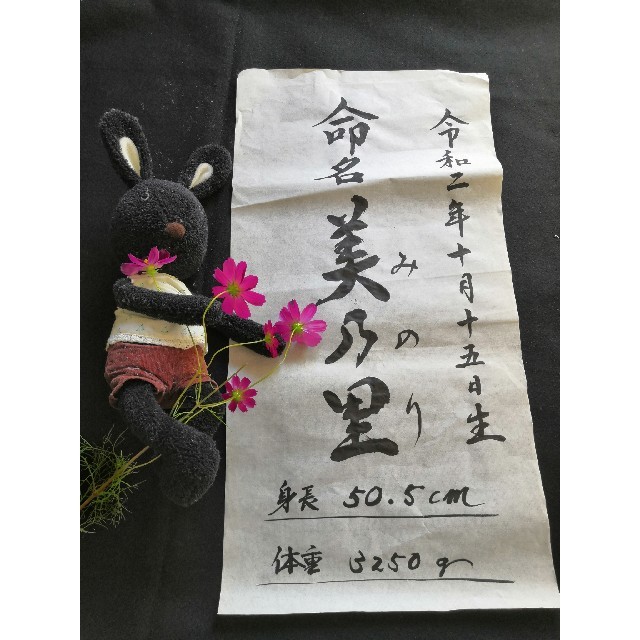 令和二年十月十五日生
命名 美乃里
みのり
身長 50.5cm
体重 3250g